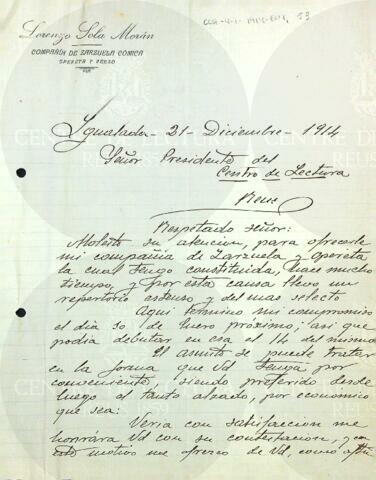 Lorenzo Sola Morán
COMPAÑÍA DE ZARZUELA CÓMICA
OPERETA Y VERSO
Ygualada - 21 - Diciembre - 1914
Señor Presidente del
Centro de Lectura
Reus
Respetado señor:
Molesto su atencion, para ofrecerle
mi compañia de Zarzuela y opereta
la cual tengo constituida, hace mucho
tiempo, y por esta causa llevo un
repertorio estenso y del mas selecto
Aqui termino mi compromiso
el dia 10 de Enero próximo; asi que
podia debutar en esa el 14 del mismo
El asunto se puede tratar
en la forma que Vd tenga por
conveniente, siendo preferido desde
luego el tanto alzado, por economico
que sea.
Veria con satisfaccion me
honrára Vd con su contestacion, y con
este motivo me ofrezco de Vd, como